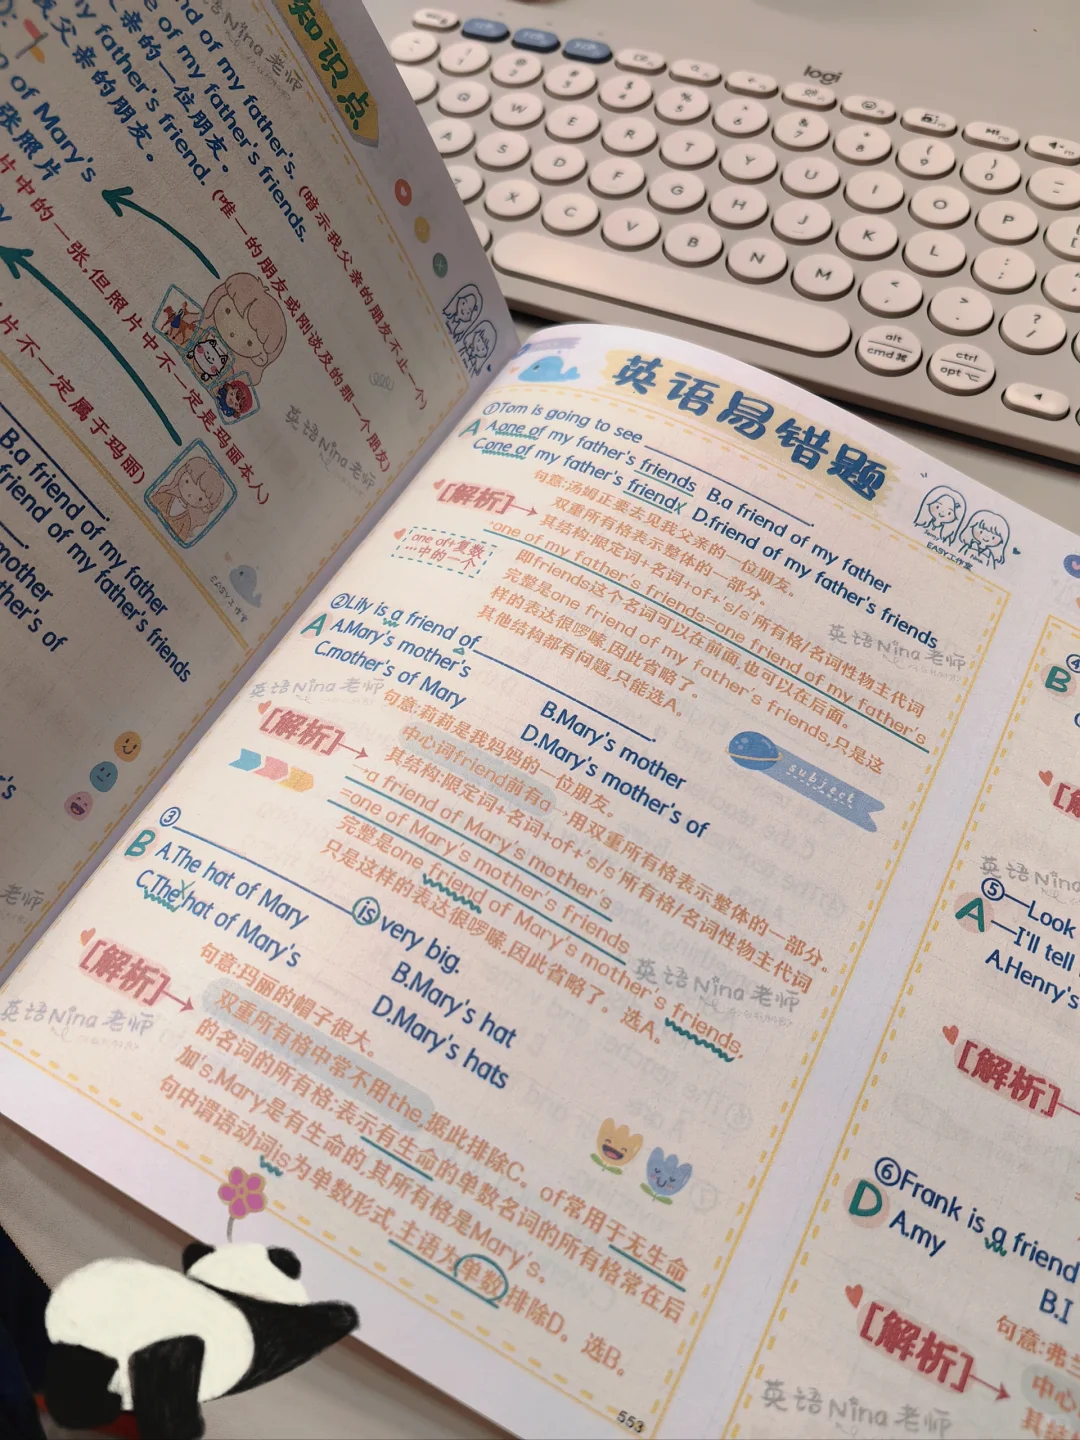 知识点
nd of my father's.
e of my father's friends.
父亲的一位朋友。
my father's friend.
父亲的朋友。
(暗示我父亲的朋友不止一个)
(唯一的朋友或刚谈及的那一个朋友)
of Mary's
张照片
片中的一张,但照片中不一定是玛丽本人)
片不一定属于玛丽)
B.a friend of my father
friend of my father's friends
mother
ther's of
英语Nina老师
EASY工作室
logi
英语易错题
①Tom is going to see ______.
A
A.one of my father's friends
B.a friend of my father
C.one of my father's friend
D.friend of my father's friends
[解析]
句意:汤姆正要去见我父亲的一位朋友。
双重所有格表示整体的一部分。
其结构:限定词+名词+of+'s/s'所有格/名词性物主代词
one of+复数
…中的一个
·one of my father's friends=one friend of my father's
即friends这个名词可以在前面,也可以在后面。
完整是one friend of my father's friends,只是这
样的表达很啰嗦,因此省略了。
其他结构都有问题,只能选A。
英语Nina老师
EASY工作室
②Lily is a friend of ______.
A
A.Mary's mother's
B.Mary's mother
C.mother's of Mary
D.Mary's mother's of
英语Nina老师
[解析]
句意:莉莉是我妈妈的一位朋友。
中心词friend前有a→用双重所有格表示整体的一部分。
其结构:限定词+名词+of+'s/s'所有格/名词性物主代词
·a friend of Mary's mother's
=one of Mary's mother's friends
完整是one friend of Mary's mother's friends,
只是这样的表达很啰嗦,因此省略了。选A。
subject
英语Nina老师
③______ is very big.
B
A.The hat of Mary
B.Mary's hat
C.The hat of Mary's
D.Mary's hats
[解析]
句意:玛丽的帽子很大。
双重所有格中常不用the,据此排除C。of常用于无生命
的名词的所有格;表示有生命的单数名词的所有格常在后
加's,Mary是有生命的,其所有格是Mary's。
句中谓语动词is为单数形式,主语为单数,排除D。选B。
英语Nina老师
553
④
B
英语Nina
⑤—Look
A
—I'll tell
A.Henry's
[解析]
⑥Frank is a friend
D
A.my
B.I
[解析]
句意:弗兰
中心
其结构
英语Nina老师